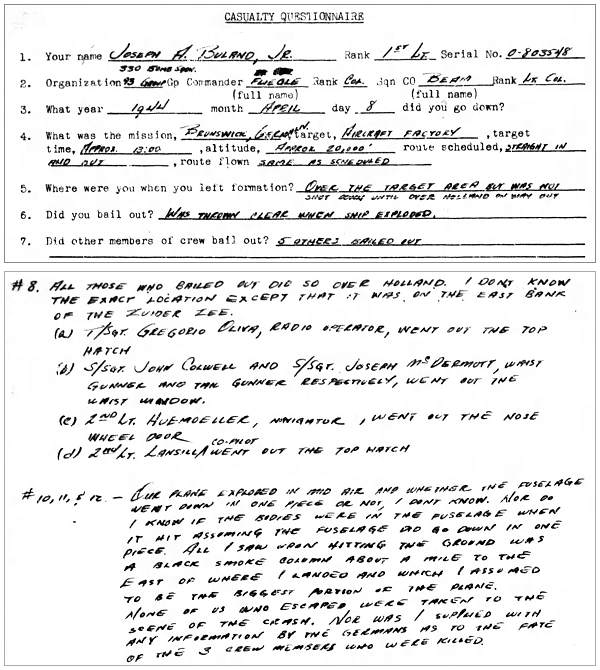 CASUALTY QUESTIONNAIRE
1. Your name JOSEPH A. BULAND, JR. Rank 1ST LT Serial No. O-803548
330 BOMB SQDN.
2. Organization 93 GROUP Gp Commander FIEGLE Rank COL. Sqn CO BEAM Rank LT COL.
(full name) (full name)
3. What year 1944 month APRIL day 8 did you go down?
4. What was the mission, BRUNSWICK, GERMAN. target, AIRCRAFT FACTORY, target
time, APPROX. 13:00, altitude, APPROX 20,000' route scheduled, STRAIGHT IN
AND OUT, route flown SAME AS SCHEDULED
5. Where were you when you left formation? OVER THE TARGET AREA BUT WAS NOT
SHOT DOWN UNTIL OVER HOLLAND ON WAY OUT
6. Did you bail out? WAS THROWN CLEAR WHEN SHIP EXPLODED.
7. Did other members of crew bail out? 5 OTHERS BAILED OUT
#8. ALL THOSE WHO BAILED OUT DID SO OVER HOLLAND. I DON'T KNOW
THE EXACT LOCATION EXCEPT THAT IT WAS ON THE EAST BANK
OF THE ZUIDER ZEE.
(a) T/SGT. GREGORIO OLIVA, RADIO OPERATOR, WENT OUT THE TOP
HATCH
(b) S/SGT. JOHN COLWELL AND S/SGT. JOSEPH McDERMOTT, WAIST
GUNNER AND TAIL GUNNER RESPECTIVELY, WENT OUT THE
WAIST WINDOW.
(c) 2ND LT. HUEMOELLER, NAVIGATOR, WENT OUT THE NOSE
WHEEL DOOR
CO-PILOT
(d) 2ND LT. LANSILLA WENT OUT THE TOP HATCH
#10, 11, & 12. - OUR PLANE EXPLODED IN MID AIR AND WHETHER THE FUSELAGE
WENT DOWN IN ONE PIECE OR NOT, I DON'T KNOW. NOR DO
I KNOW IF THE BODIES WERE IN THE FUSELAGE WHEN
IT HIT ASSUMING THE FUSELAGE DID GO DOWN IN ONE
PIECE. ALL I SAW UPON HITTING THE GROUND WAS
A BLACK SMOKE COLUMN ABOUT A MILE TO THE
EAST OF WHERE I LANDED AND WHICH I ASSUMED
TO BE THE BIGGEST PORTION OF THE PLANE.
NONE OF US WHO ESCAPED WERE TAKEN TO THE
SCENE OF THE CRASH. NOR WAS I SUPPLIED WITH
ANY INFORMATION BY THE GERMANS AS TO THE FATE
OF THE 3 CREW MEMBERS WHO WERE KILLED.